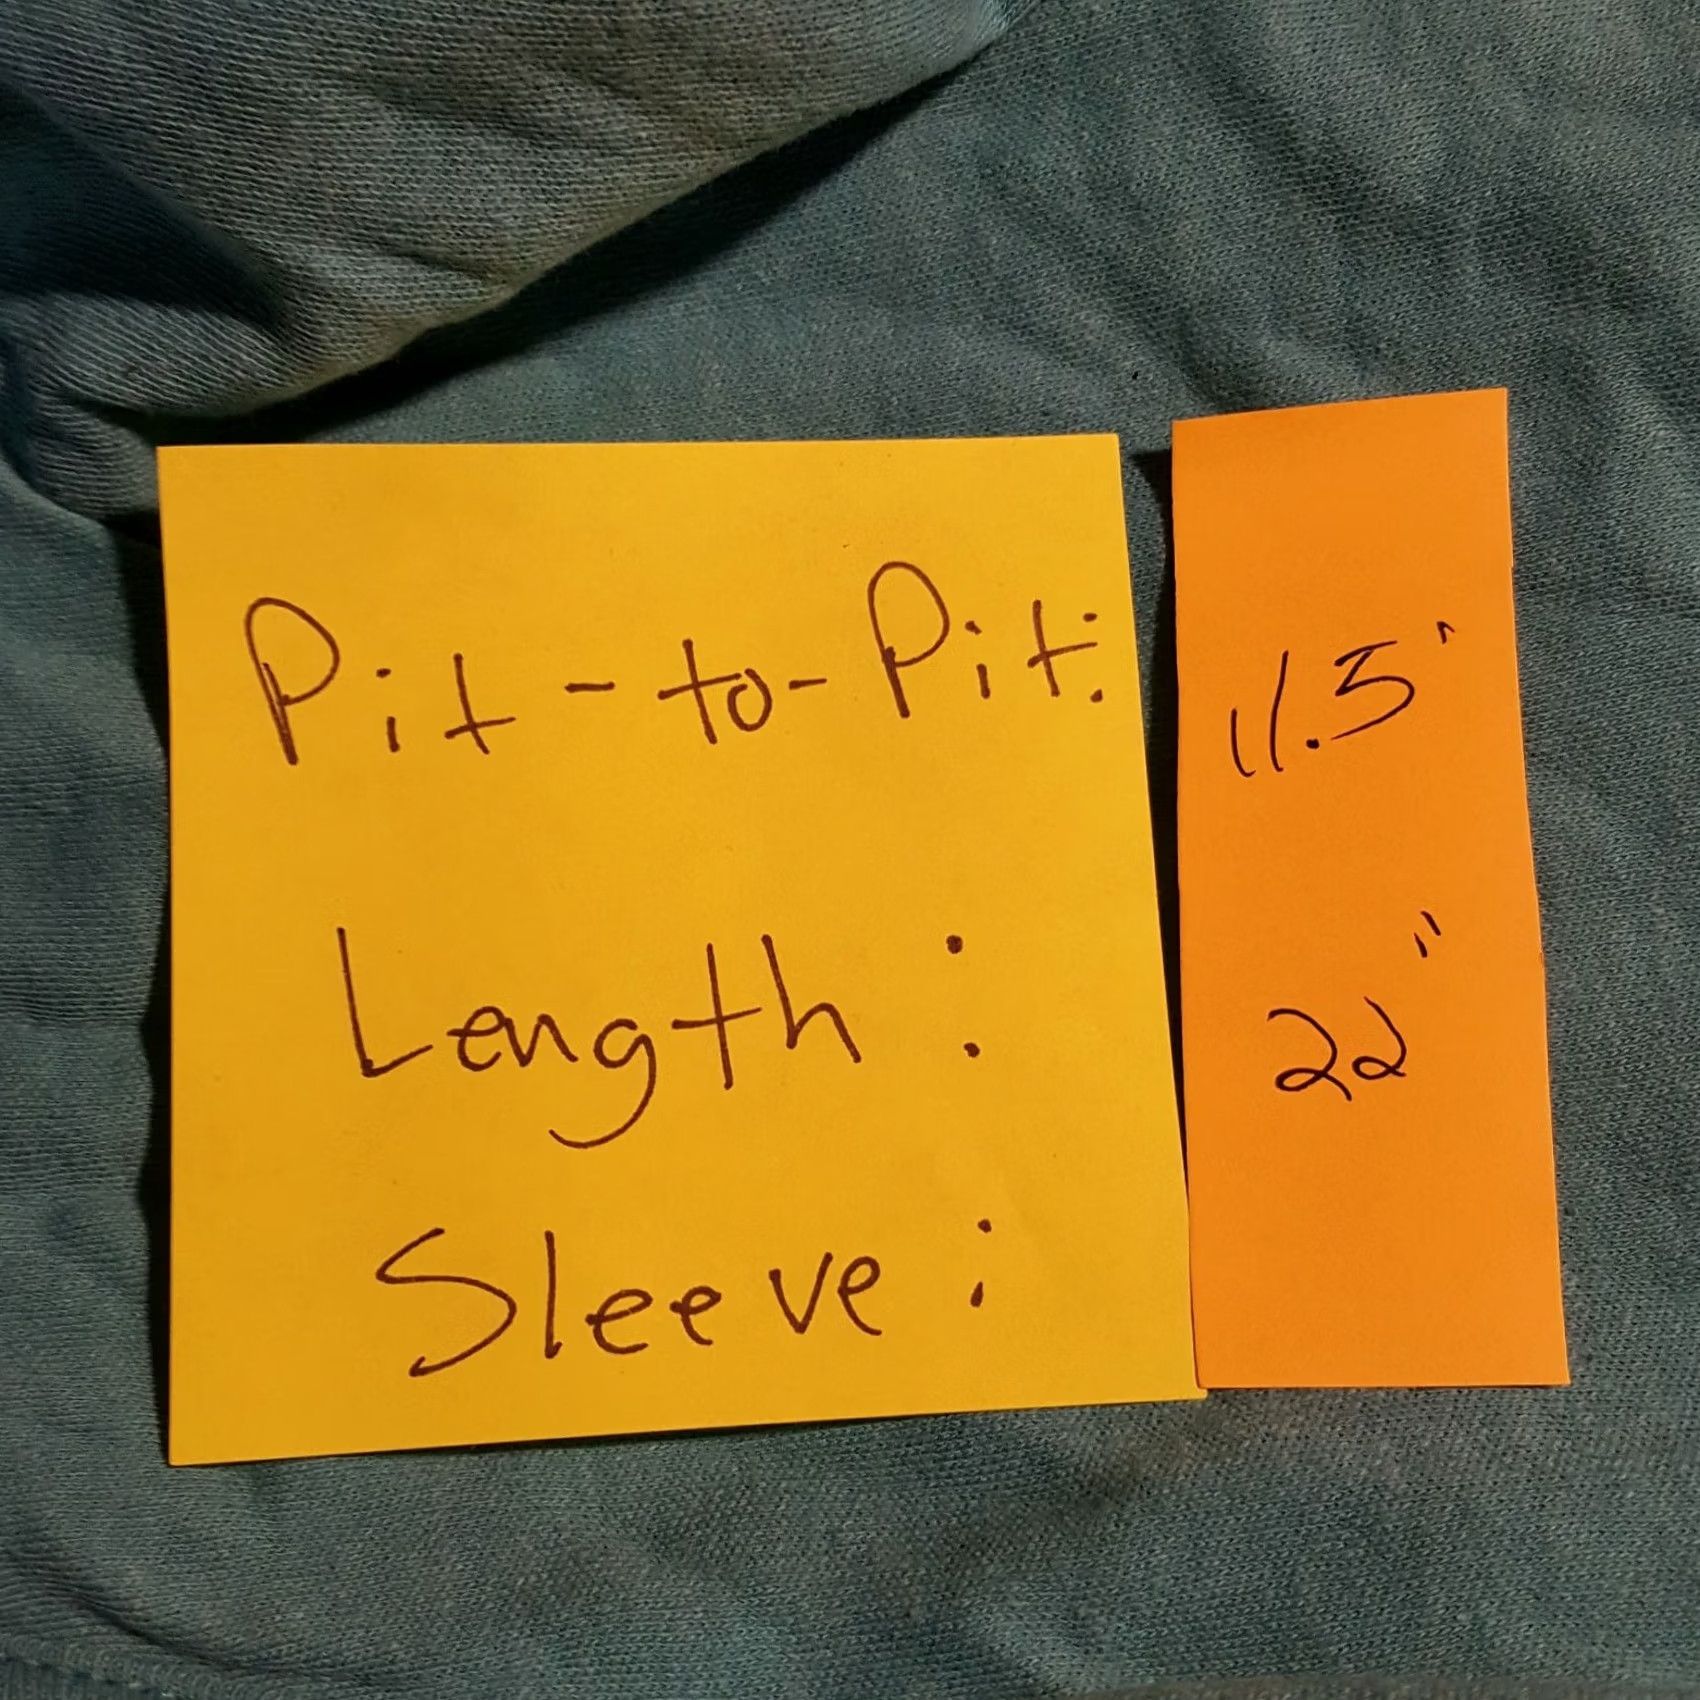 Pit-to-Pit: 11.5"
Length: 22"
Sleeve: